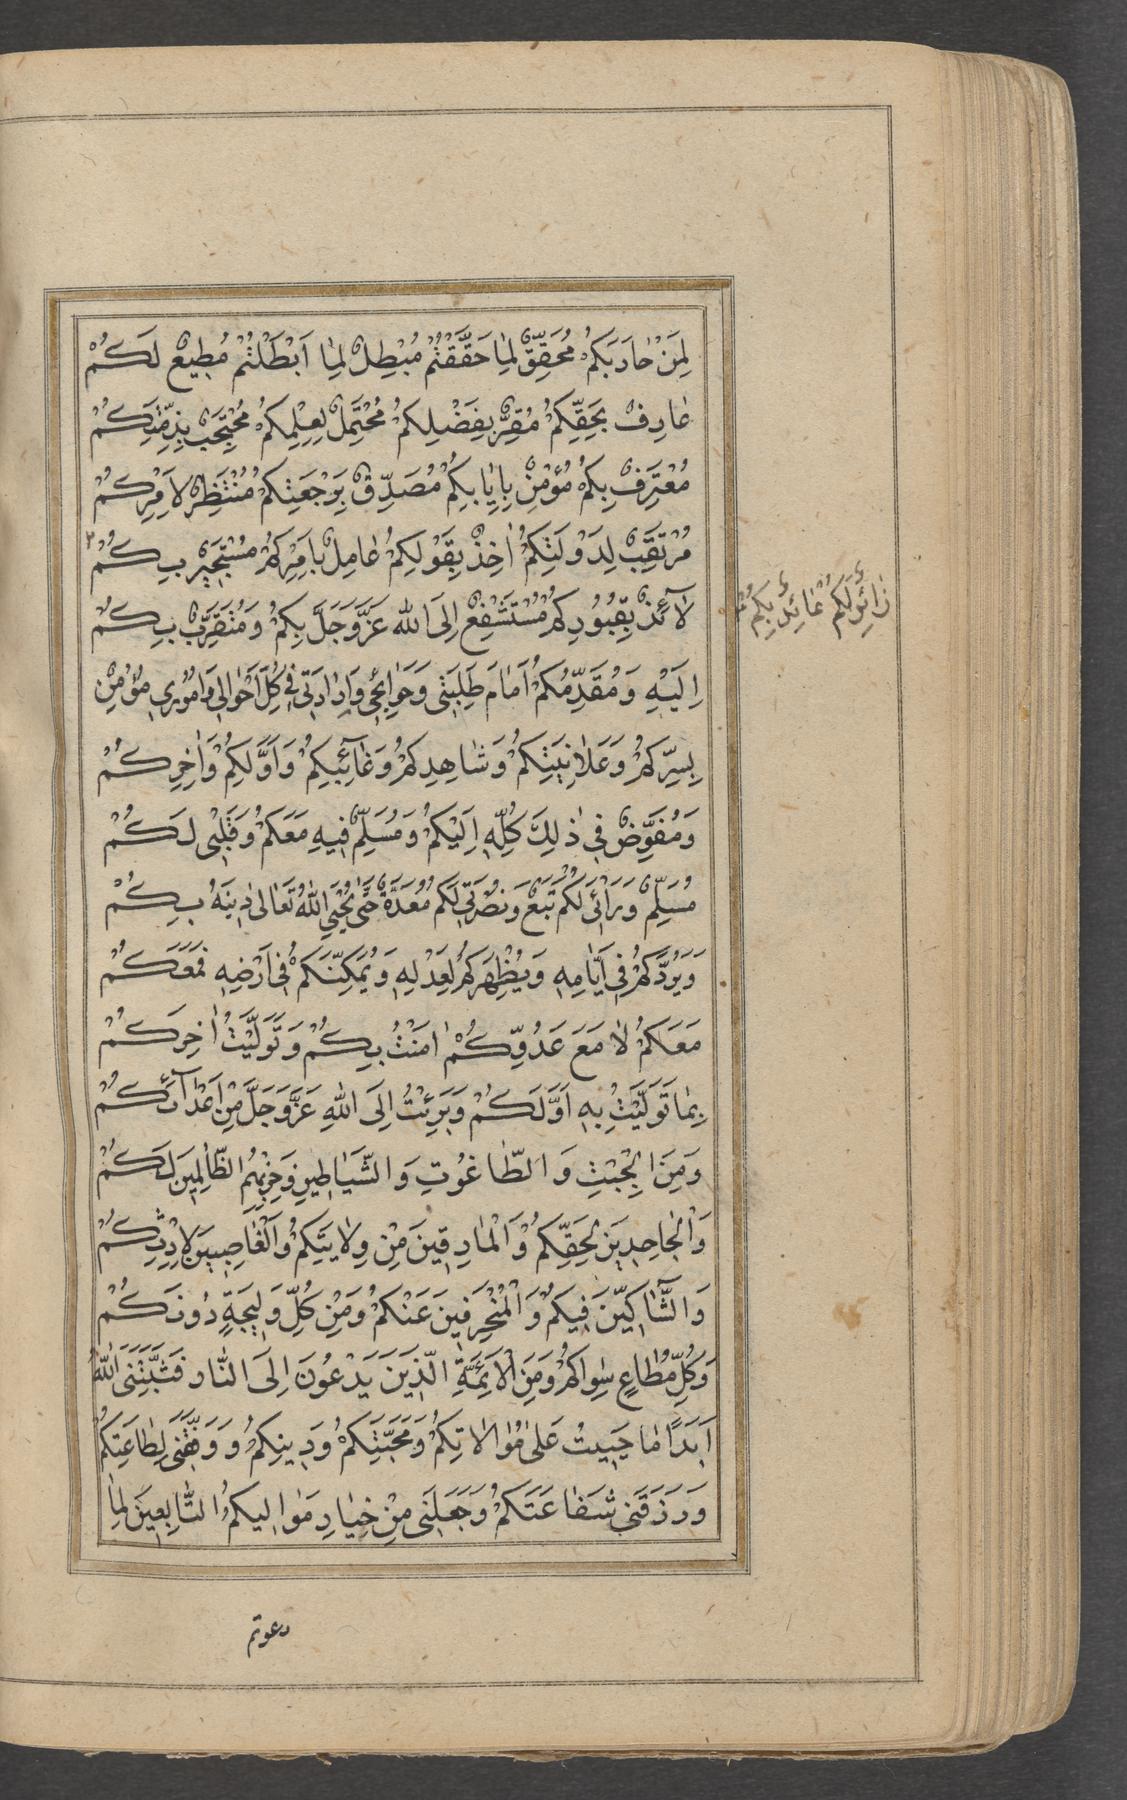 لِمَنْ حٰارَبَكُمْ مُحَقِّقٌ لِمٰا حَقَّقْتُمْ مُبْطِلٌ لِمٰا اَبْطَلْتُمْ مُطِيعٌ لَكُمْ
عٰارِفٌ بِحَقِّكُمْ مُقِرٌّ بِفَضْلِكُمْ مُحْتَمِلٌ لِعِلْمِكُمْ مُحْتَجِبٌ بِذِمَّتِكُمْ
مُعْتَرِفٌ بِكُمْ مُؤْمِنٌ بِاِيٰابِكُمْ مُصَدِّقٌ بِرَجْعَتِكُمْ مُنْتَظِرٌ لِاَمْرِكُمْ
مُرْتَقِبٌ لِدَوْلَتِكُمْ اٰخِذٌ بِقَوْلِكُمْ عٰامِلٌ بِاَمْرِكُمْ مُسْتَجِيرٌ بِكُمْ
زٰائِرٌ لَكُمْ عٰائِذٌ بِكُمْ
لٰآئِذٌ بِقُبُورِكُمْ مُسْتَشْفِعٌ اِلَى اللّٰه عَزَّوَجَلَّ بِكُمْ وَمُتَقَرِّبٌ بِكُمْ
اِلَيْهِ وَمُقَدِّمُكُمْ اَمٰامَ طَلِبَتِى وَحَوٰائِجِى وَاِرٰادَتِى فِى كُلِّ اَحْوٰالِى وَاُمُورِى مُؤْمِنٌ
بِسِرِّكُمْ وَعَلٰانِيَتِكُمْ وَشٰاهِدِكُمْ وَغٰآئِبِكُمْ وَاَوَّلِكُمْ وَاٰخِرِكُمْ
وَمُفَوِّضٌ فِى ذٰلِكَ كُلِّهِ اِلَيْكُمْ وَمُسَلِّمٌ فِيهِ مَعَكُمْ وَقَلْبِى لَكُمْ
مُسَلِّمٌ وَرَائِى لَكُمْ تَبَعٌ وَنُصْرَتِى لَكُمْ مُعَدَّةٌ حَتّٰى يُحْيِىَ اللّٰهُ تَعٰالىٰ دِينَهُ بِكُمْ
وَيَرُدَّكُمْ فِى اَيّٰامِهِ وَيُظْهِرَكُمْ لِعَدْلِهِ وَيُمَكِّنَكُمْ فِى اَرْضِهِ فَمَعَكُمْ
مَعَكُمْ لٰا مَعَ عَدُوِّكُمْ اٰمَنْتُ بِكُمْ وَتَوَلَّيْتُ اٰخِرَكُمْ
بِمٰا تَوَلَّيْتُ بِهِ اَوَّلَكُمْ وَبَرِئْتُ اِلَى اللّٰهِ عَزَّوَجَلَّ مِنْ اَعْدٰآئِكُمْ
وَمِنَ الْجِبْتِ وَالطّٰاغُوتِ وَالشَّيٰاطِينِ وَحِزْبِهِمُ الظّٰالِمِينَ لَكُمْ
وَالْجٰاحِدِينَ لِحَقِّكُمْ وَالْمٰارِقِينَ مِنْ وِلٰايَتِكُمْ وَالْغٰاصِبِينَ لِاِرْثِكُمْ
وَالشّٰآكِّينَ فِيكُمْ وَالْمُنْحَرِفِينَ عَنْكُمْ وَمِنْ كُلِّ وَلِيجَةٍ دُونَكُمْ
وَكُلِّ مُطٰاعٍ سِوٰاكُمْ وَمِنَ الْاَئِمَّةِ الَّذِينَ يَدْعُونَ اِلَى النّٰارِ فَثَبَّتَنِى اللّٰهُ
اَبَدًا مٰا حَيِيتُ عَلىٰ مُوٰالٰاتِكُمْ وَمَحَبَّتِكُمْ وَدِينِكُمْ وَوَفَّقَنِى لِطٰاعَتِكُمْ
وَرَزَقَنِى شَفٰاعَتَكُمْ وَجَعَلَنِى مِنْ خِيٰارِ مَوٰالِيكُمُ التّٰابِعِينَ لِمٰا
دعوتم